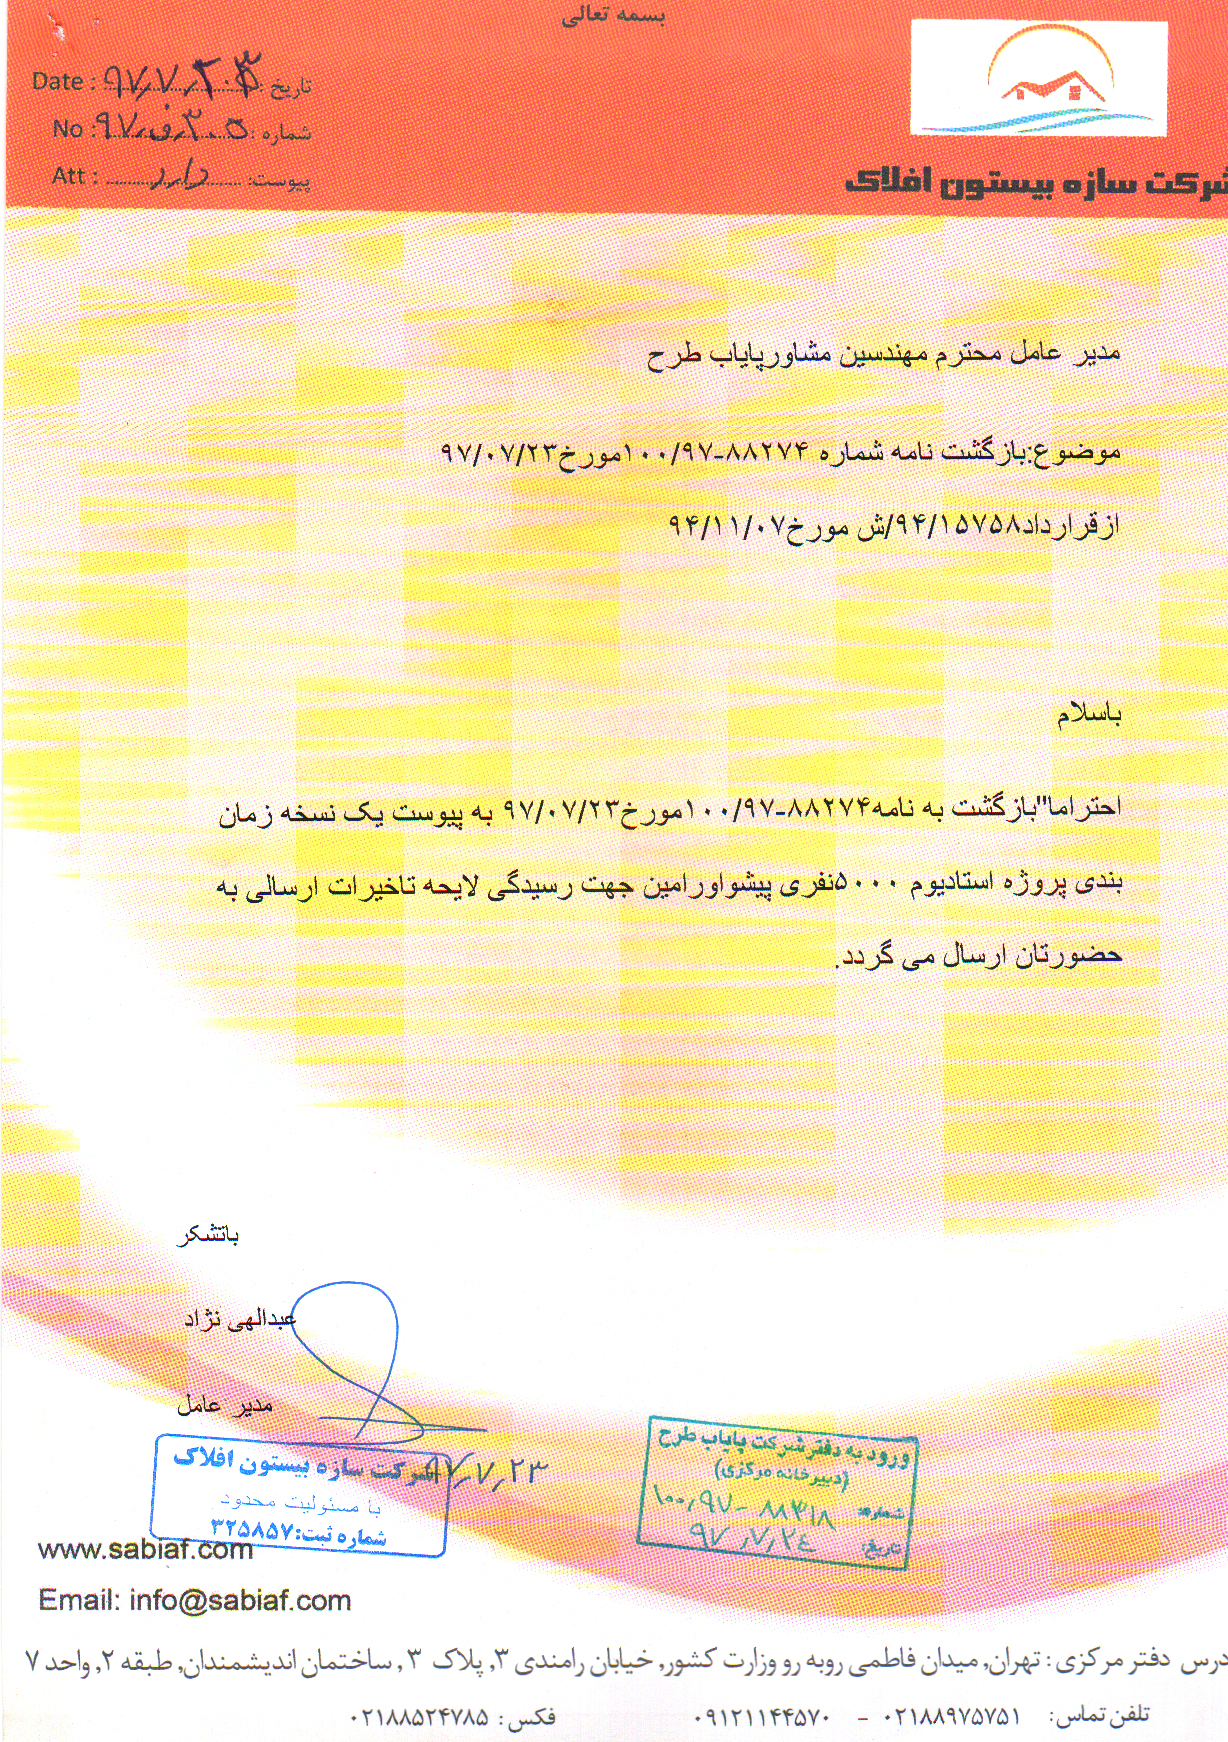 بسمه تعالی
تاریخ : ۹۷,۷,۲۳ : Date
شماره : ۹۷,ف,۳۰۵ : No
پیوست: دارد : Att
شرکت سازه بیستون افلاک
مدیر عامل محترم مهندسین مشاورپایاب طرح
موضوع:بازگشت نامه شماره ۸۸۲۷۴-۱۰۰/۹۷مورخ۹۷/۰۷/۲۳
ازقرارداد۹۴/۱۵۷۵۸/ش مورخ۹۴/۱۱/۰۷
باسلام
احتراما"بازگشت به نامه۸۸۲۷۴-۱۰۰/۹۷مورخ۹۷/۰۷/۲۳ به پیوست یک نسخه زمان
بندی پروژه استادیوم ۵۰۰۰نفری پیشواورامین جهت رسیدگی لایحه تاخیرات ارسالی به
حضورتان ارسال می گردد.
باتشکر
عبدالهی نژاد
مدیر عامل
۹۷,۷,۲۳
شرکت سازه بیستون افلاک
با مسئولیت محدود
شماره ثبت:۳۲۵۸۵۷
ورود به دفتر شرکت پایاب طرح
(دبیرخانه مرکزی)
شماره: ۱۰۰,۹۷-۸۸۳۱۸
تاریخ: ۹۷,۷,۲۴
www.sabiaf.com
Email: info@sabiaf.com
درس دفتر مرکزی : تهران, میدان فاطمی روبه رو وزارت کشور, خیابان رامندی ۳, پلاک ۳ , ساختمان اندیشمندان, طبقه ۲, واحد ۷
تلفن تماس: ۰۲۱۸۸۹۷۵۷۵۱ - ۰۹۱۲۱۱۴۴۵۷۰ فکس : ۰۲۱۸۸۵۲۴۷۸۵